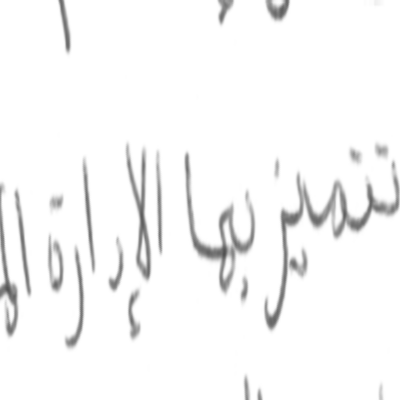 تتميز بها الإدارة